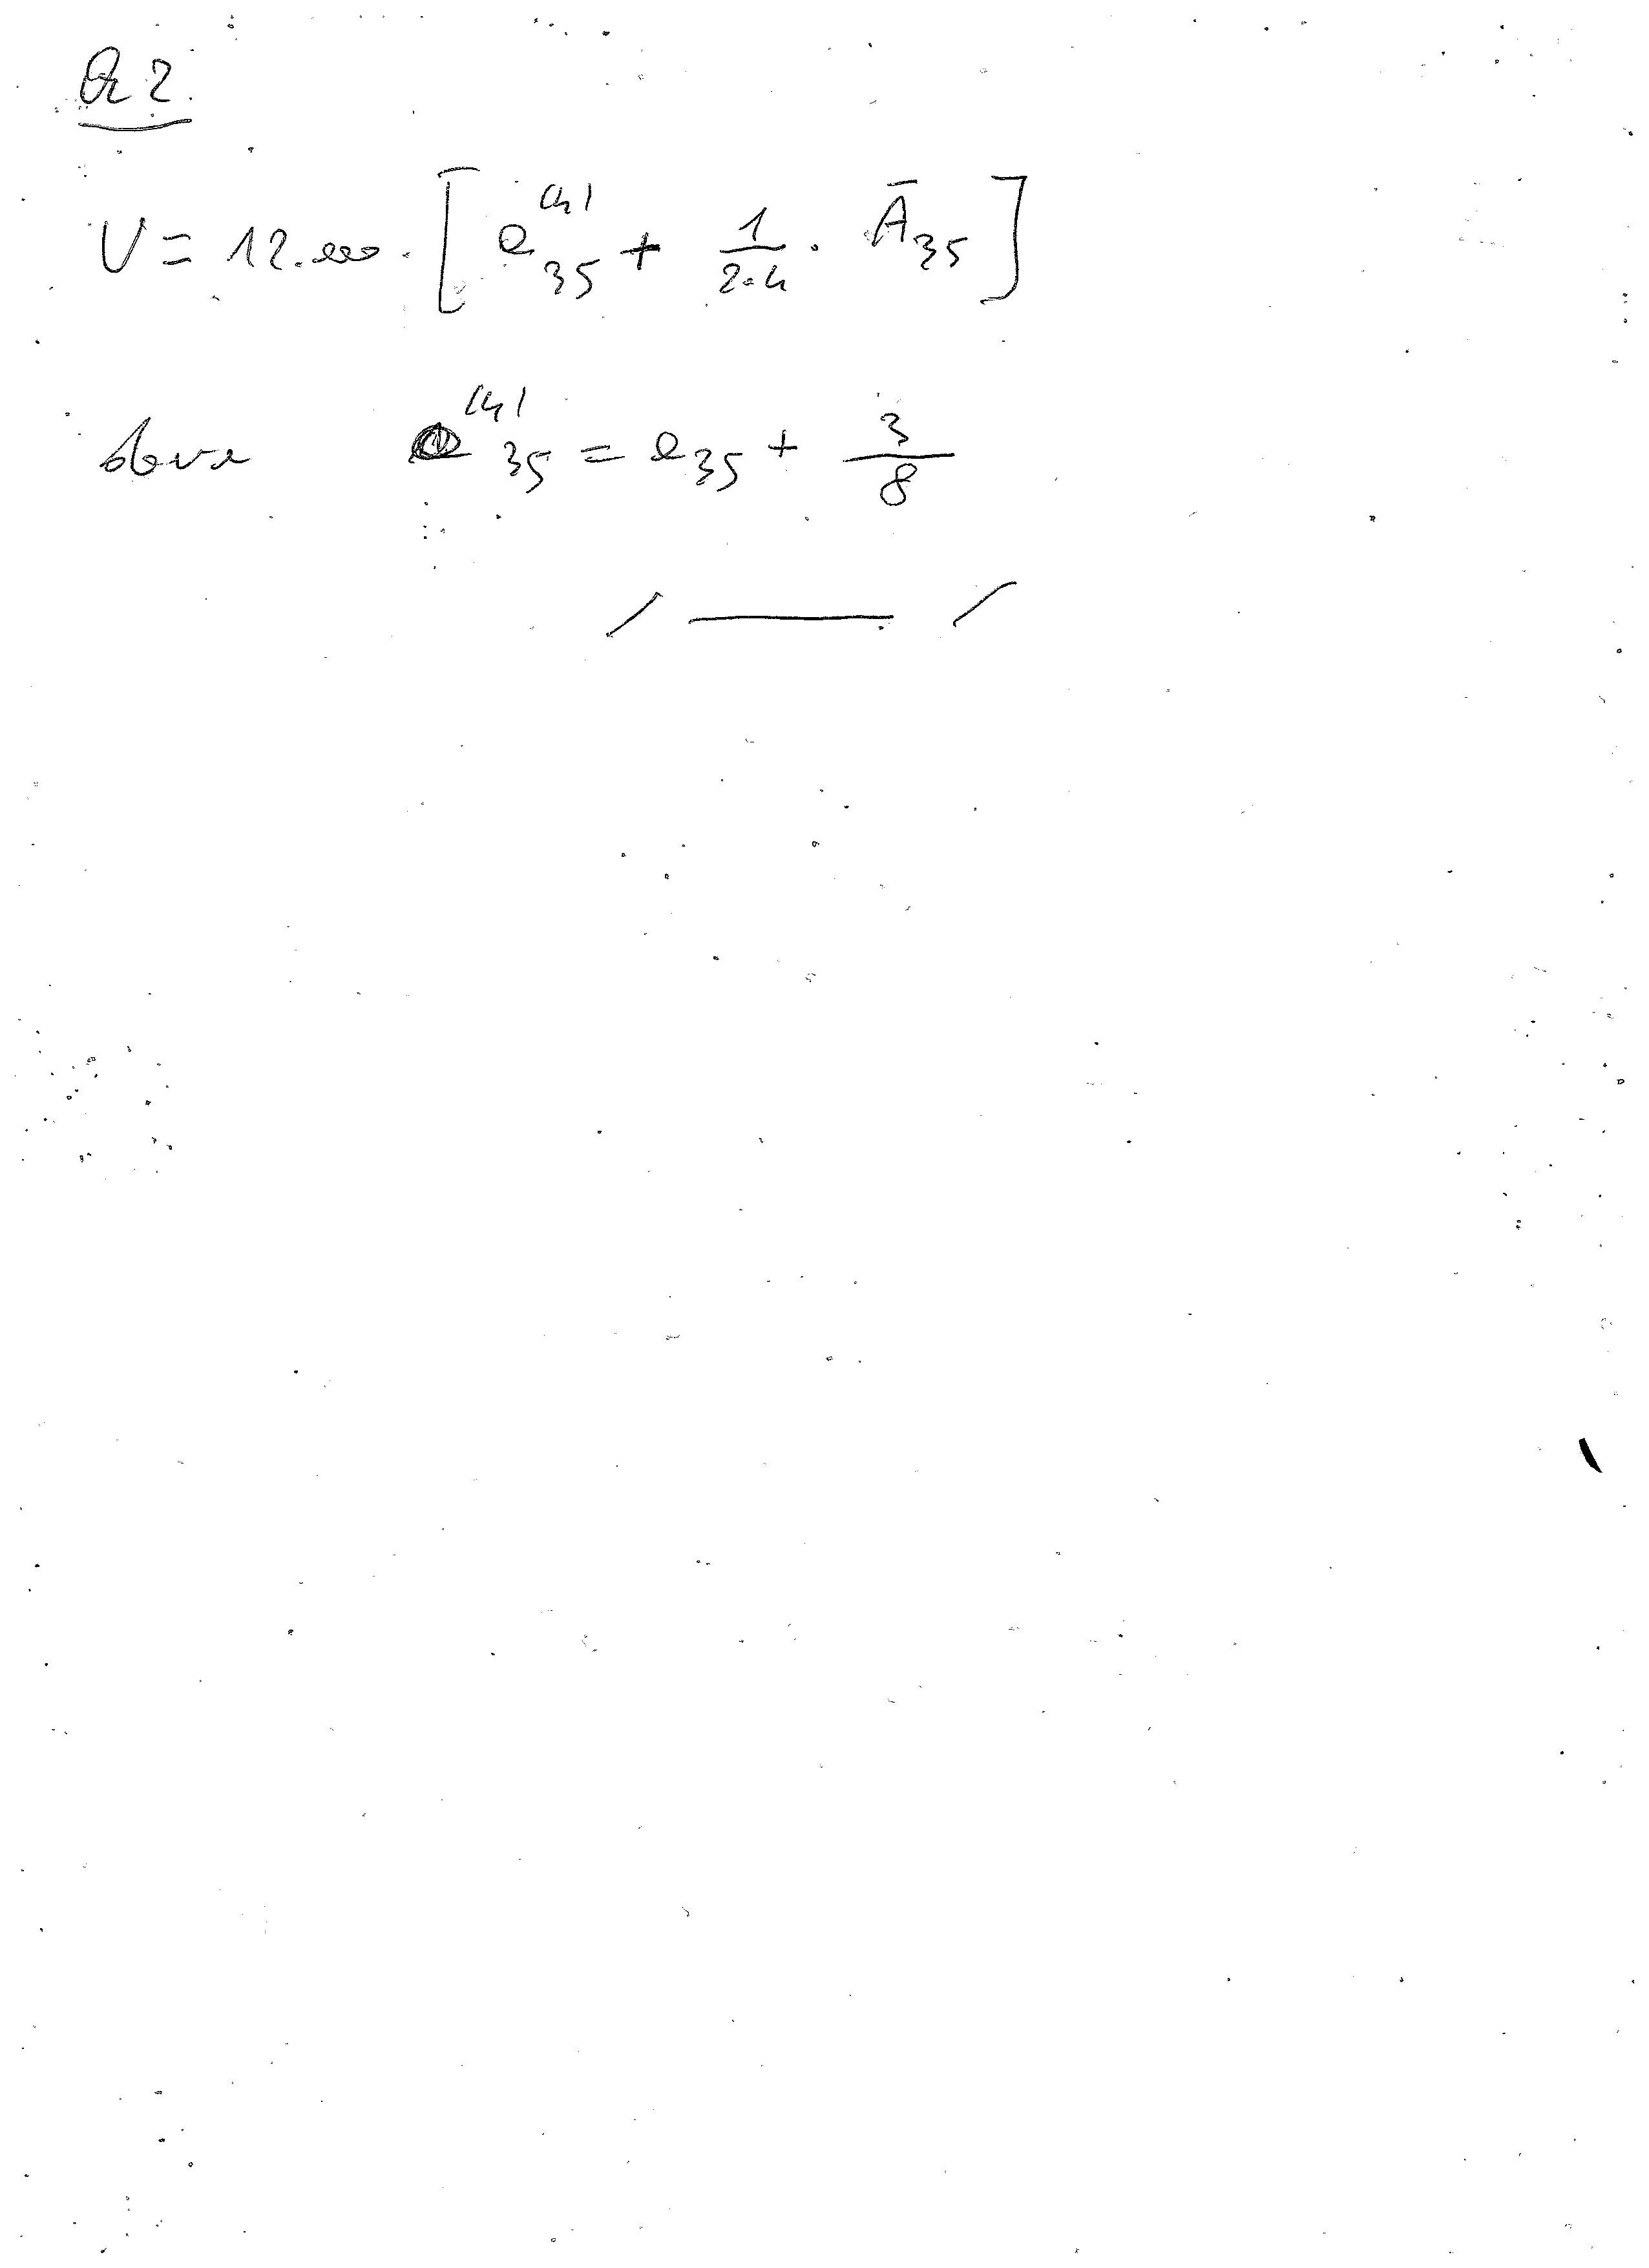 Q 2.
V = 12.000 · [ a₃₅⁽⁴⁾ + 1/(2·4) · Ā₃₅ ]
dove a₃₅⁽⁴⁾ = a₃₅ + 3/8